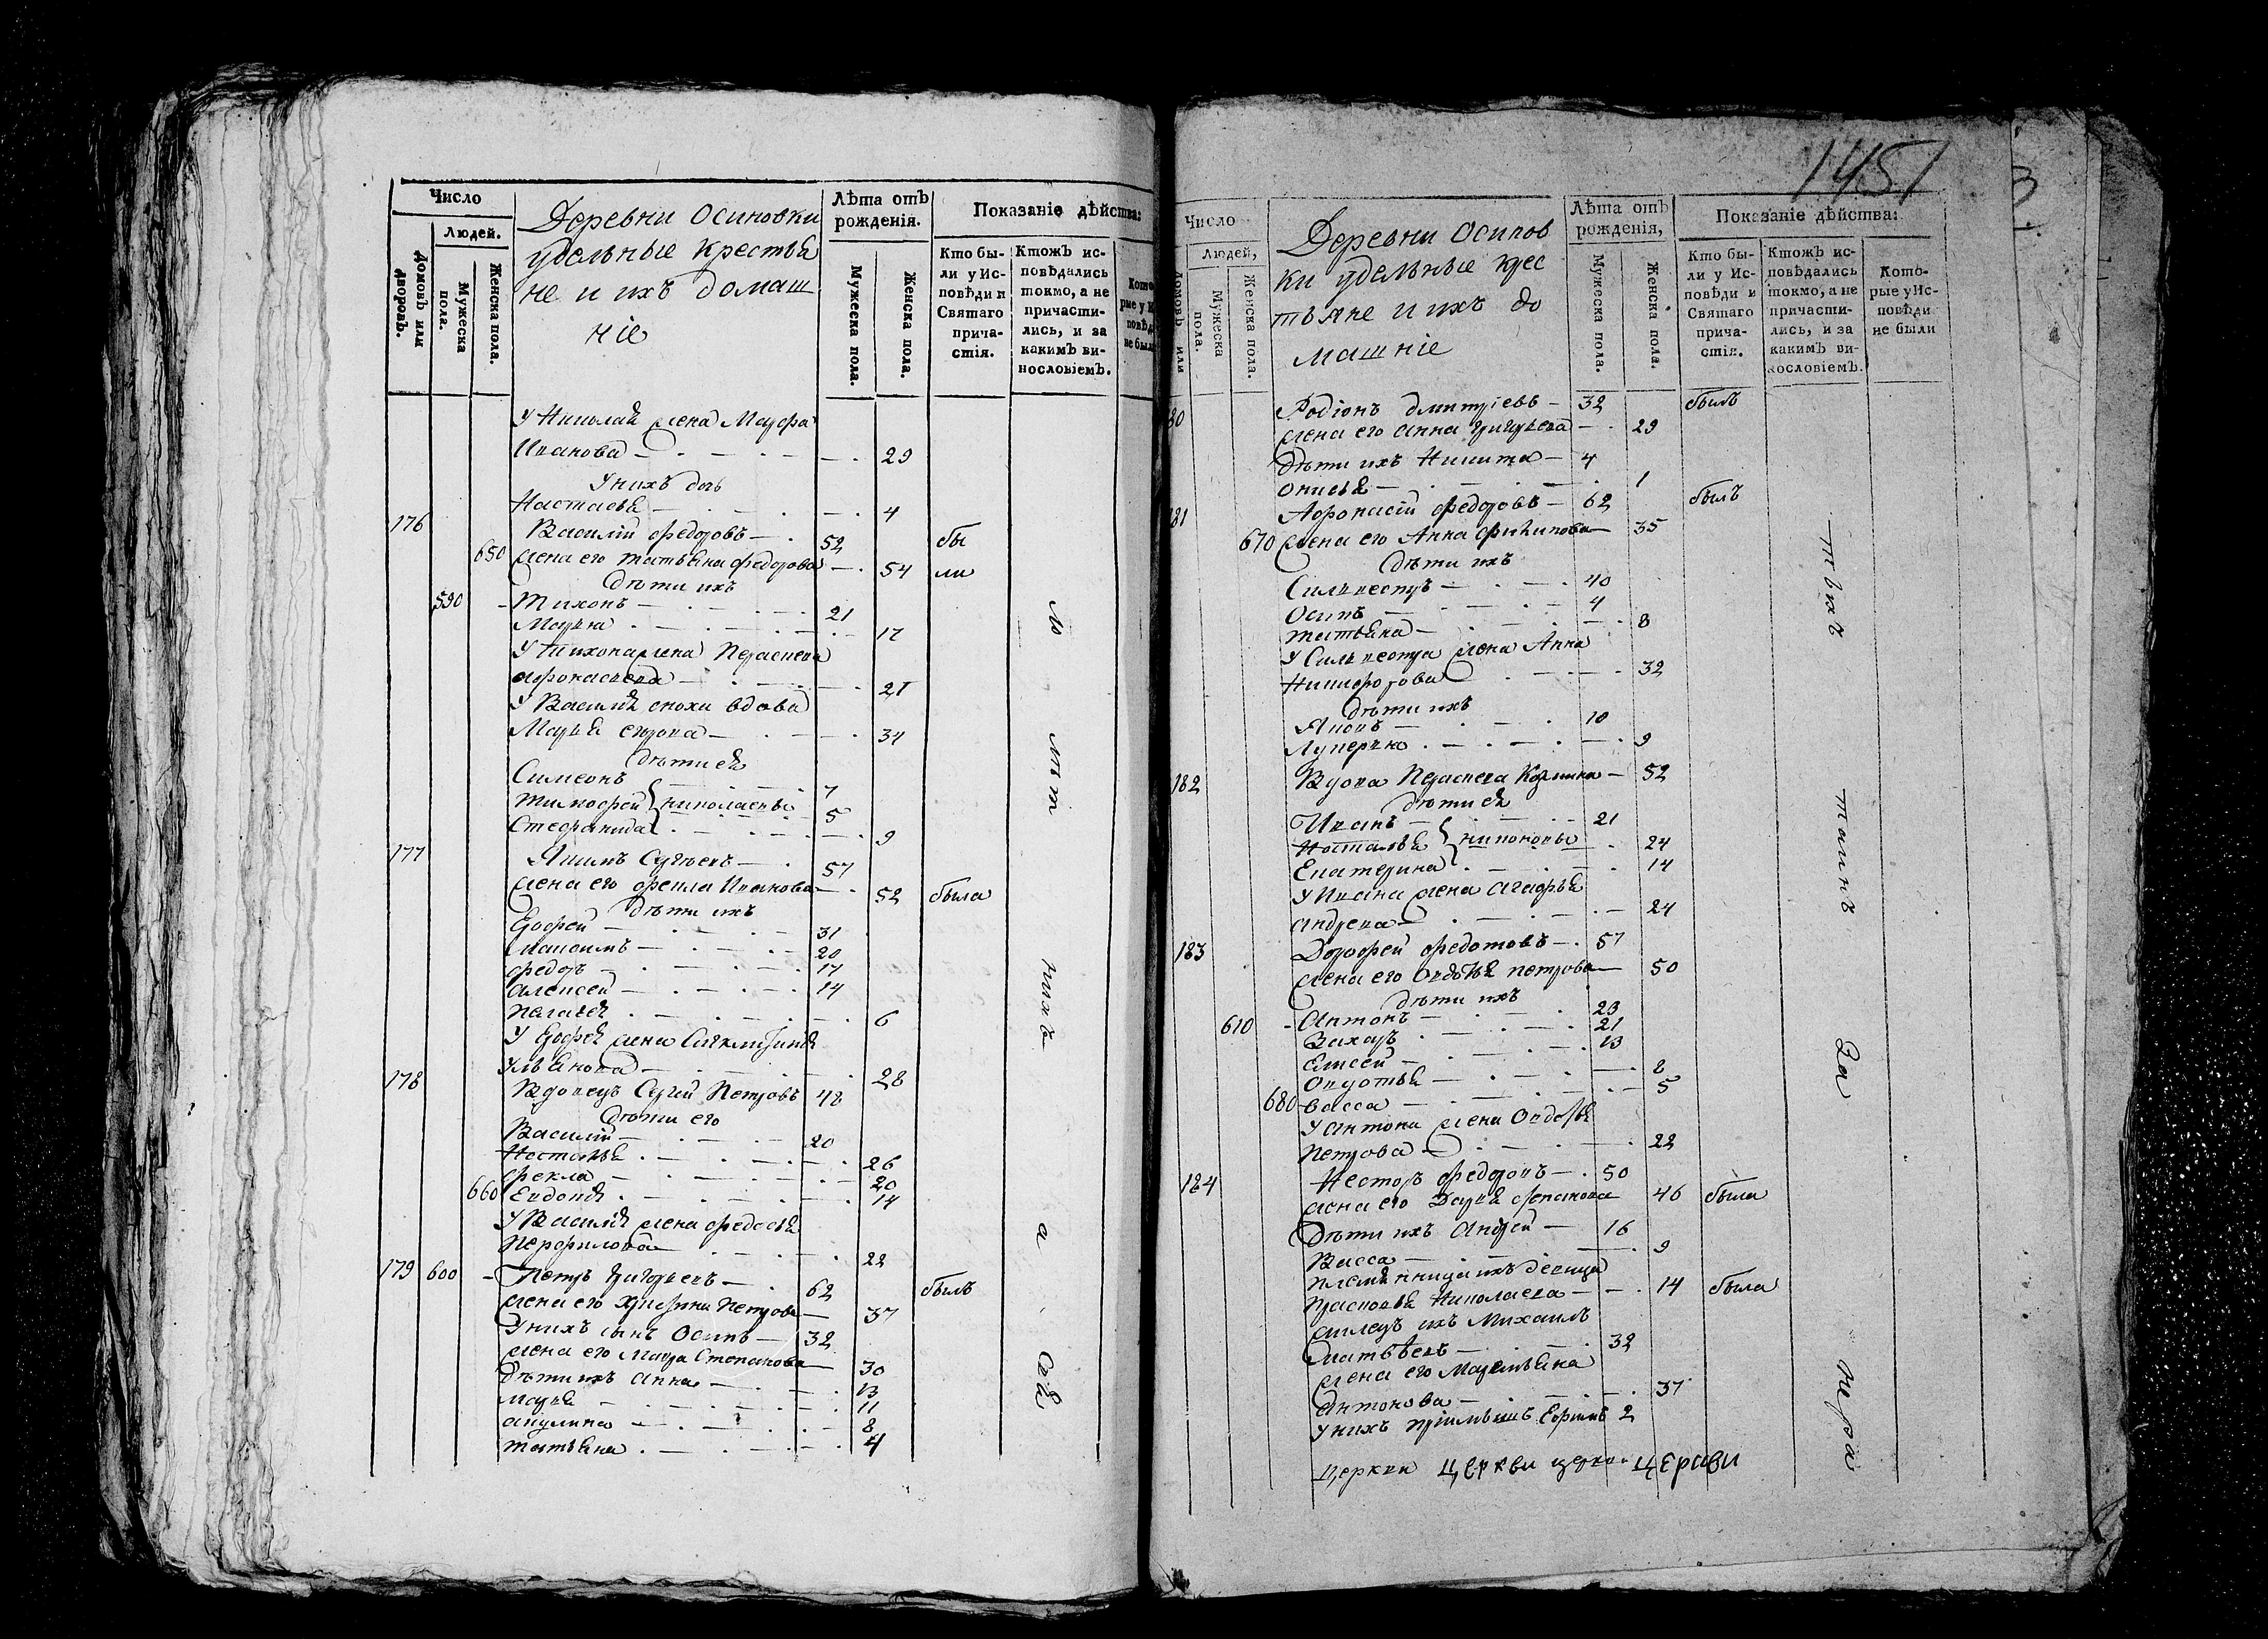 Число
Людей.
Домовъ или дворовъ.
Мужеска пола.
Женска пола.
Деревни Осиновки
удельные крестья
не и ихъ домаш
ніе
Лѣта отъ рожденія.
Мужеска пола.
Женска пола.
Показаніе дѣйства:
Кто бы-
ли у Ис-
повѣди и
Святаго
прича-
стія.
Ктожъ ис-
повѣдались
токмо, а не
причасти-
лись, и за
какимъ ви-
нословіемъ.
У Николая жена Мавра
Иванова 29
У нихъ дочь
Настасья 4
176 Василій Федоровъ 52 бы
650 жена его Татьяна Федорова 54 ли
Дѣти ихъ
590 Тихонъ 21
Марья 17
У Тихона жена Парасковья
Афонасьева 21
У Василья сноха вдова
Марья Егорова 34
Дѣти ея
Симеонъ 7
Тимофей Николаевы 5
Стефанида 9
177 Якимъ Сергѣевъ 57
жена его Фекла Иванова 52 была
Дѣти ихъ
Ерофей 31
Максимъ 20
Федоръ 17
Алексей 14
Пелагея 6
У Ерофея жена
Ульянова 28
178 Вдовецъ Сергей Петровъ 48
Дѣти его
Василій 20
Настасья 26
Фекла 20
660 Евдокія 14
У Василья жена Федосья
Перфилова 22
179 600 Петръ Григорьевъ 62 былъ
жена его Христина Петрова 37
У нихъ сынъ Осипъ 32
жена его Мавра Степанова 30
Дѣти ихъ Анна 13
Марья 11
Акулина 8
Татьяна 4
1451
Число
Людей,
Домовъ или
Мужеска пола.
Женска пола.
Деревни Осинов
ки удельные крес
тьяне и ихъ до
машніе
Лѣта отъ рожденія,
Мужеска пола.
Женска пола.
Показаніе дѣйства:
Кто бы-
ли у Ис-
повѣди и
Святаго
прича-
стія.
Ктожъ ис-
повѣдались
токмо, а не
причасти-
лись, и за
какимъ ви-
нословіемъ.
Кото-
рые у Ис-
повѣди
не были
80 Родіонъ Дмитріевъ 32 былъ
жена его Анна Григорьева 29
Дѣти ихъ Никита 4
Онисья 1
81 Афонасій Федоровъ 62 былъ
670 жена его Анна Филипова 35
Дѣти ихъ
Сильвестръ 40
Осипъ 4
Татьяна 8
У Сильвестра жена Анна
Никифорова 32
Дѣти ихъ
Яковъ 10
Лукерья 9
182 Вдова Парасковья Козмина 52
Дѣти ея
Иванъ 21
Наталья Никоновы 24
Екатерина 14
У Ивана жена Агафья
Андреева 24
183 Дорофей Федотовъ 57
жена его Овдотья Петрова 50
Дѣти ихъ
610 Антонъ 23
Захаръ 21
Елисей 13
Овдотья 8
680 Васса 5
У Антона жена Овдотья
Петрова 22
184 Несторъ Федоровъ 50
жена его Дарья Степанова 46 была
Дѣти ихъ Андрей 16
Васса 9
Племянница ихъ девица
Прасковья Николаева 14 была
жилецъ ихъ Михаилъ
Матвѣевъ 32
жена его Маремьяна
Антонова 37
У нихъ пріимышъ Ефимъ 2
Церкви церкви церкви церкви